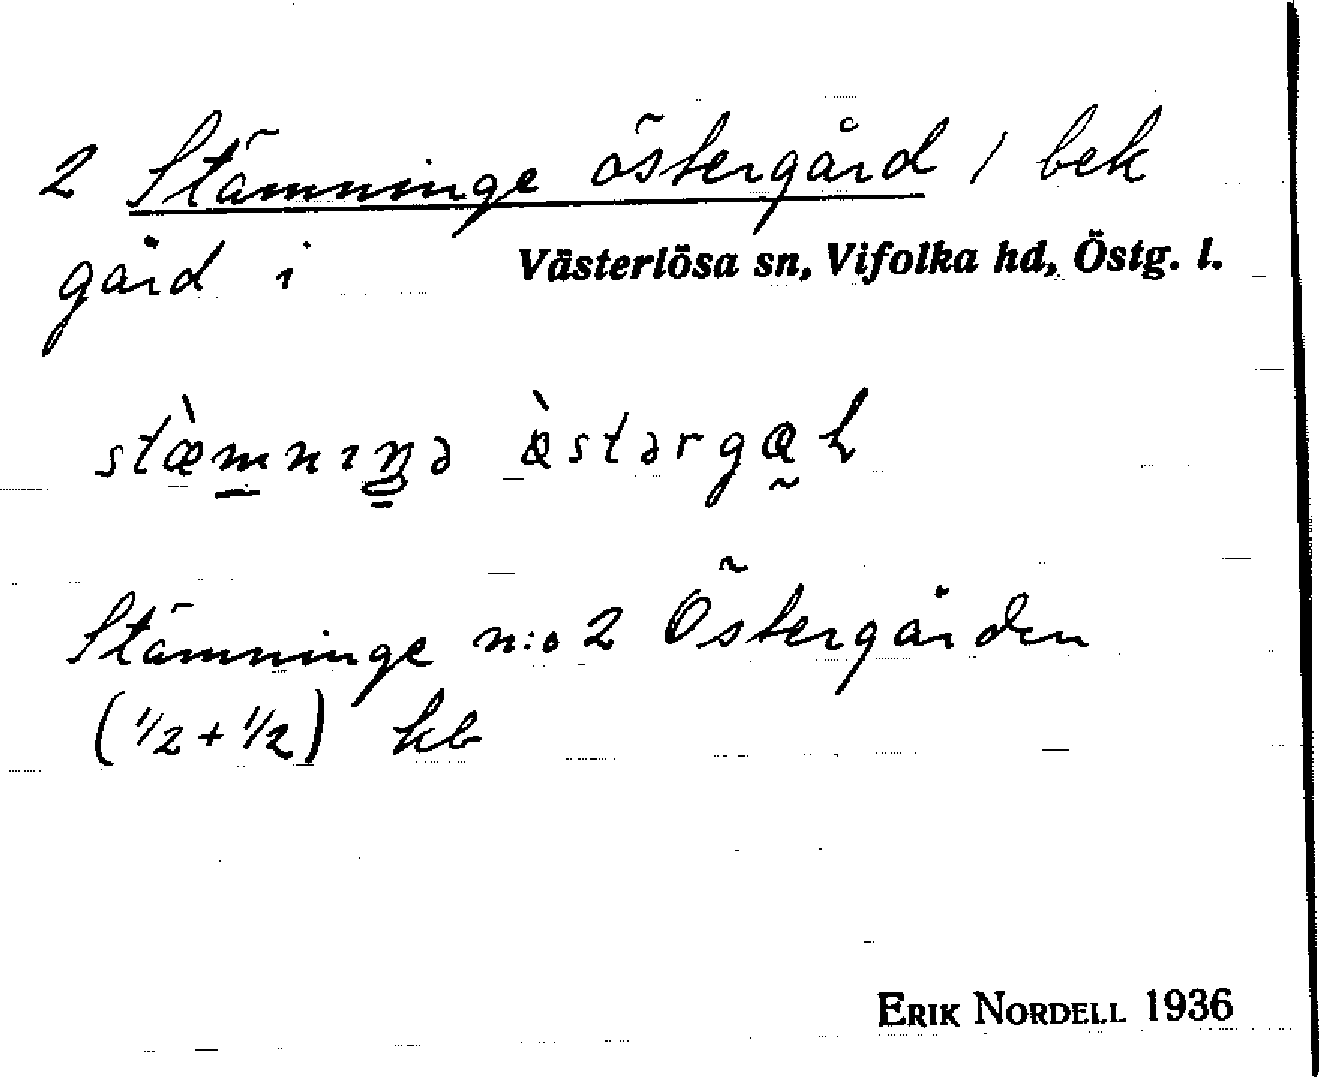 2 Stämninge östergård / bek
gård i Västerlösa sn, Vifolka hd, Östg. l.
Stämninge n:o 2 Östergården
(1/2 + 1/2) kb
ERIK NORDELL 1936